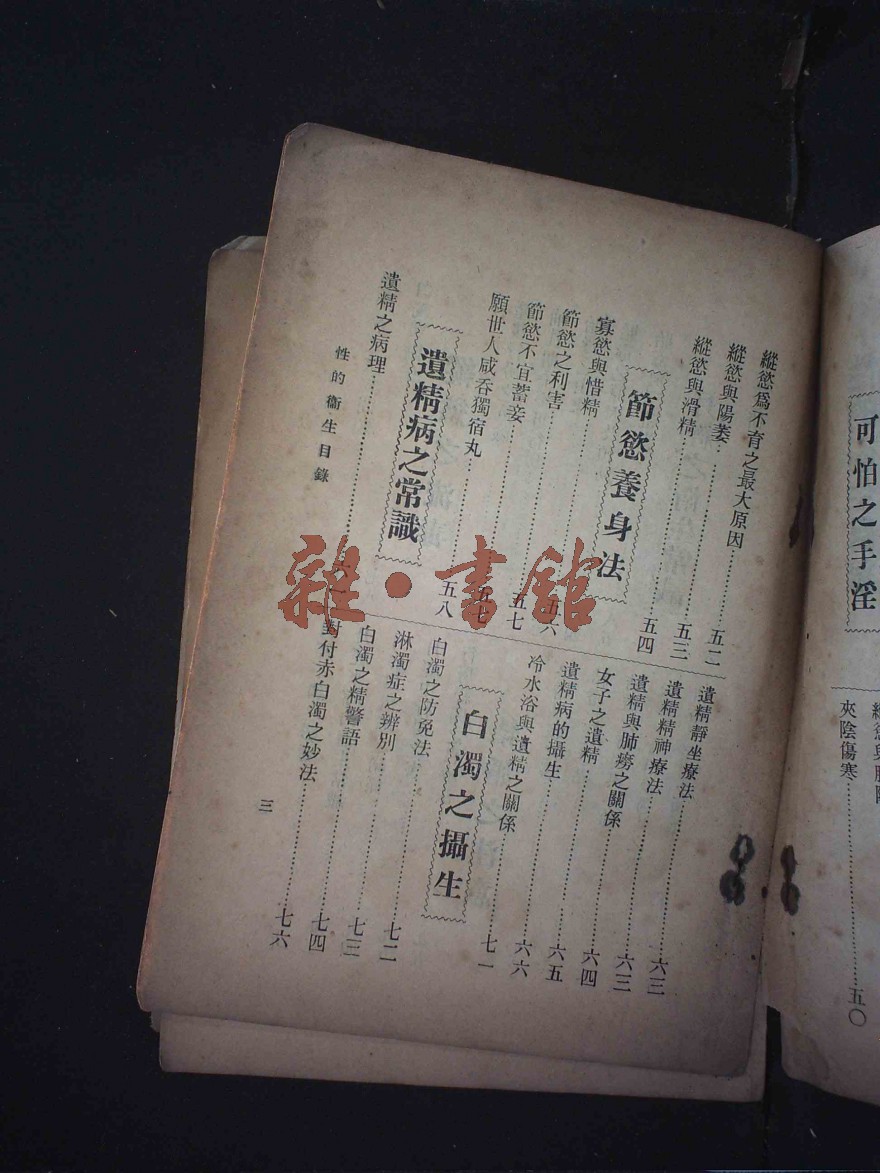 可怕之手淫
夾陰傷寒……五〇
縱慾爲不育之最大原因……五二
縱慾與陽萎……五三
縱慾與滑精……五四
節慾養身法
寡慾與惜精……五六
節慾之利害……五七
節慾不宜蓄妾……五七
願世人咸吞獨宿丸……五八
遺精病之常識
遺精之病理……六
遺精靜坐療法……六三
遺精精神療法……六三
遺精與肺癆之關係……六四
女子之遺精……六五
遺精病的攝生……六六
冷水浴與遺精之關係……七一
白濁之攝生
白濁之防免法……七二
淋濁症之辨別……七三
白濁之精警語……七四
對付赤白濁之妙法……七六
性的衞生目錄
三
雜·書館